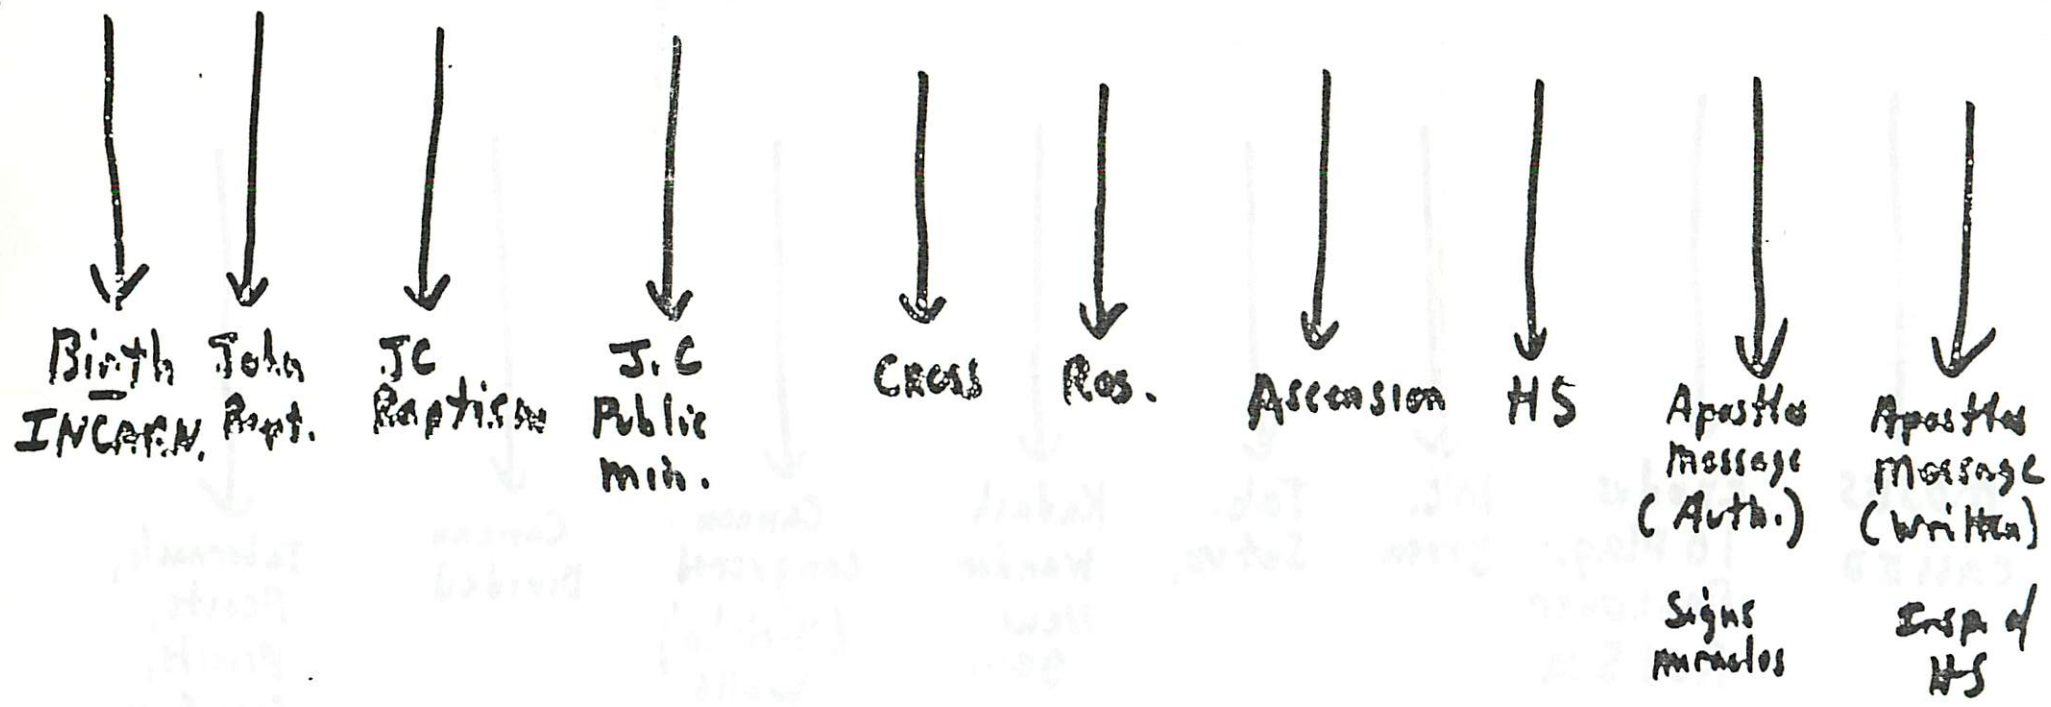 Birth
INCARN.
John
Bapt.
JC
Baptism
J.C
Public
min.
CROSS
Res.
ASCENSION
HS
Apostles
Message
(Auth.)
Signs
miracles
Apostles
Message
(written)
Insp of
HS